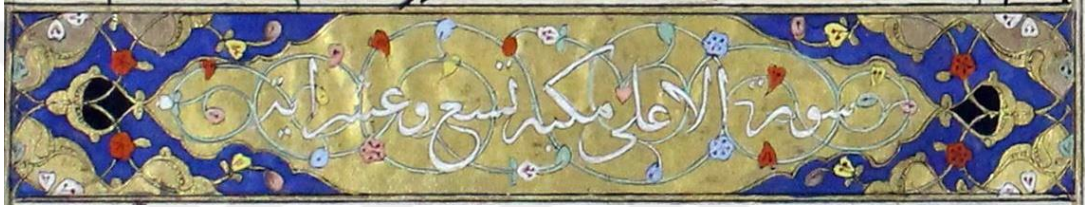 سورة الاعلى مكية تسع وعشر اية